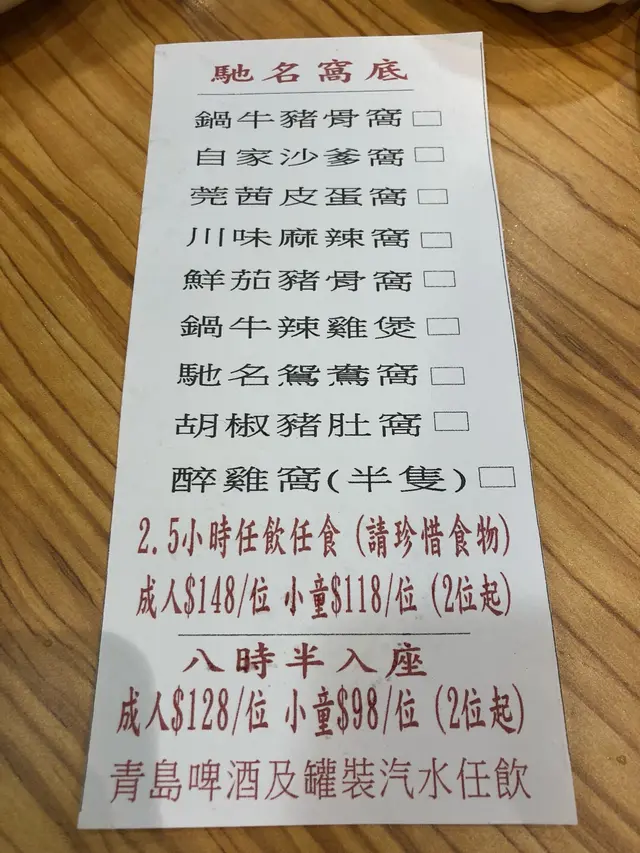 馳名窩底
鍋牛豬骨窩
自家沙爹窩
莞茜皮蛋窩
川味麻辣窩
鮮茄豬骨窩
鍋牛辣雞煲
馳名鴛鴦窩
胡椒豬肚窩
醉雞窩(半隻)
2.5小時任飲任食(請珍惜食物)
成人$148/位 小童$118/位 (2位起)
八時半入座
成人$128/位 小童$98/位 (2位起)
青島啤酒及罐裝汽水任飲